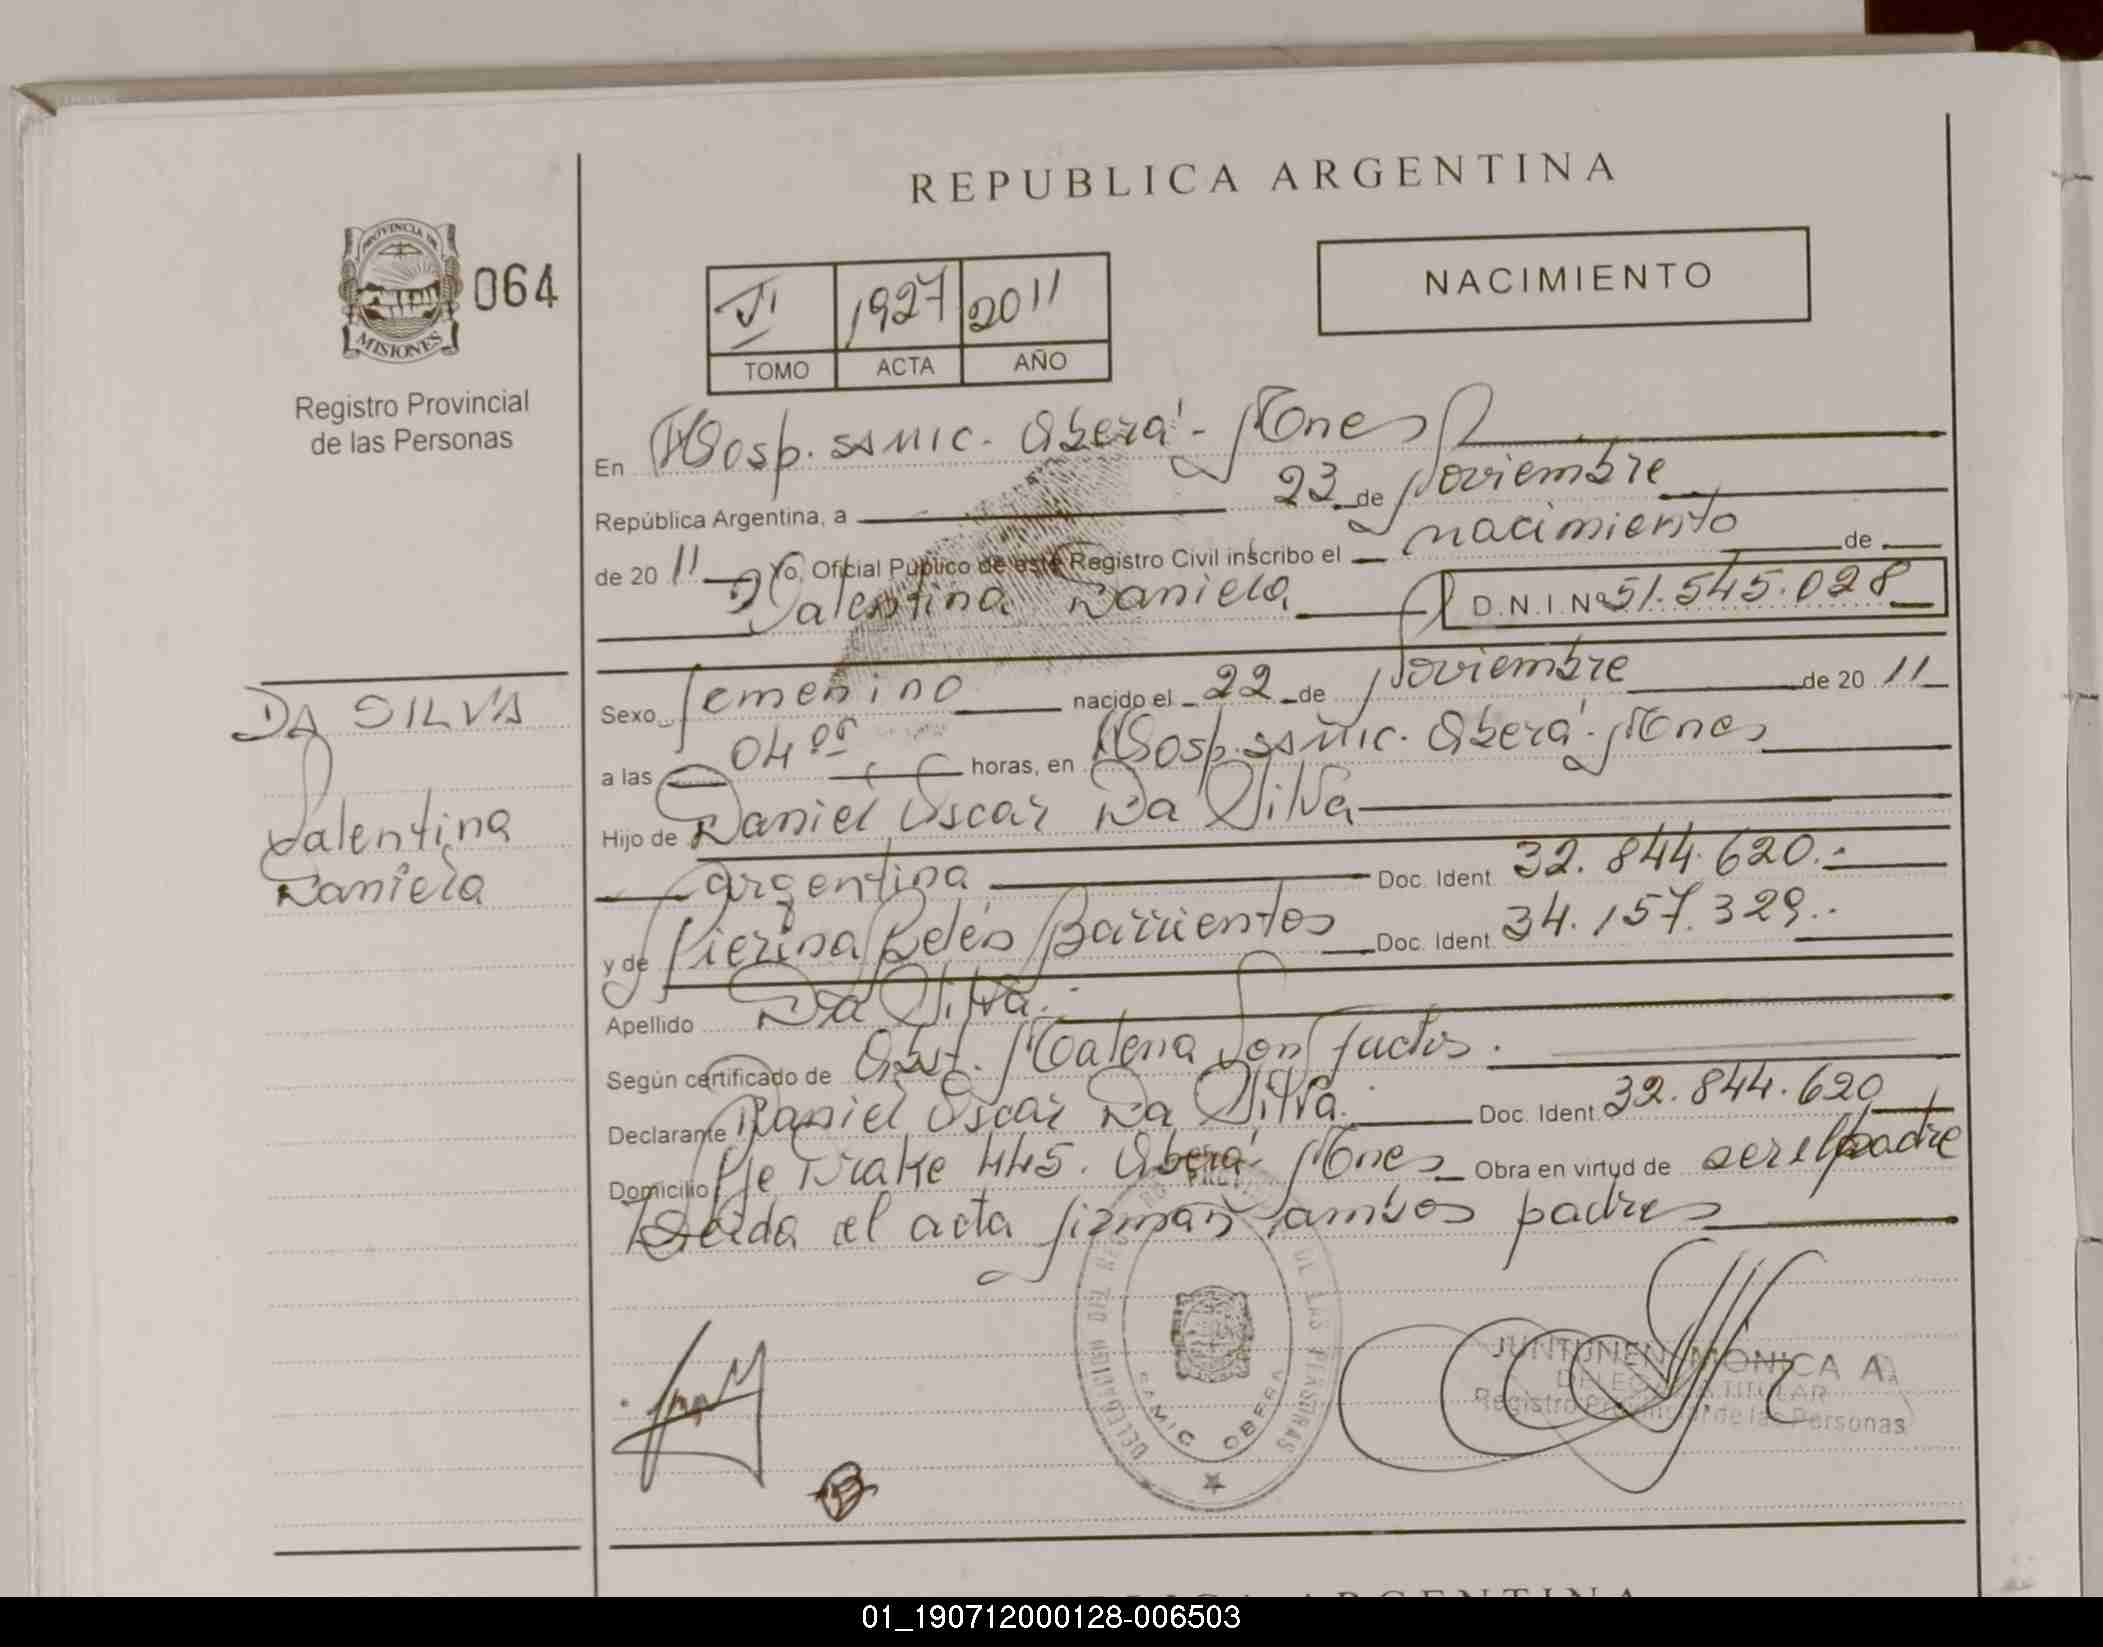 REPUBLICA ARGENTINA
PROVINCIA DE
MISIONES
064
Registro Provincial
de las Personas
VI 1927 2011
TOMO ACTA AÑO
NACIMIENTO
En Hosp. SAMIC. Oberá - Mnes
República Argentina, a 23 de Noviembre
de 2011 Yo, Oficial Público de este Registro Civil inscribo el nacimiento de
Valentina Daniela D.N.I. Nº 51.545.028
DA SILVA
Valentina
Daniela
Sexo femenino nacido el 22 de Noviembre de 2011
a las 04 05 horas, en Hosp. SAMIC. Oberá - Mnes
Hijo de Daniel Oscar Da Silva
argentina Doc. Ident 32.844.620.-
y de Pierina Belén Barrientos Doc. Ident 34.157.329.-
Apellido Da Silva.-
Según certificado de Obst. Malena
Declarante Daniel Oscar Da Silva. Doc. Ident 32.844.620
Domicilio Pje Drake 445. Oberá Mnes Obra en virtud de ser el padre
Leída el acta firman ambos padres
DELEGACION DEL REGISTRO DE LAS PERSONAS
SAMIC OBERA
JUNTUNEN MONICA A.
DELEGADA TITULAR
Registro Provincial de las Personas
01_190712000128-006503